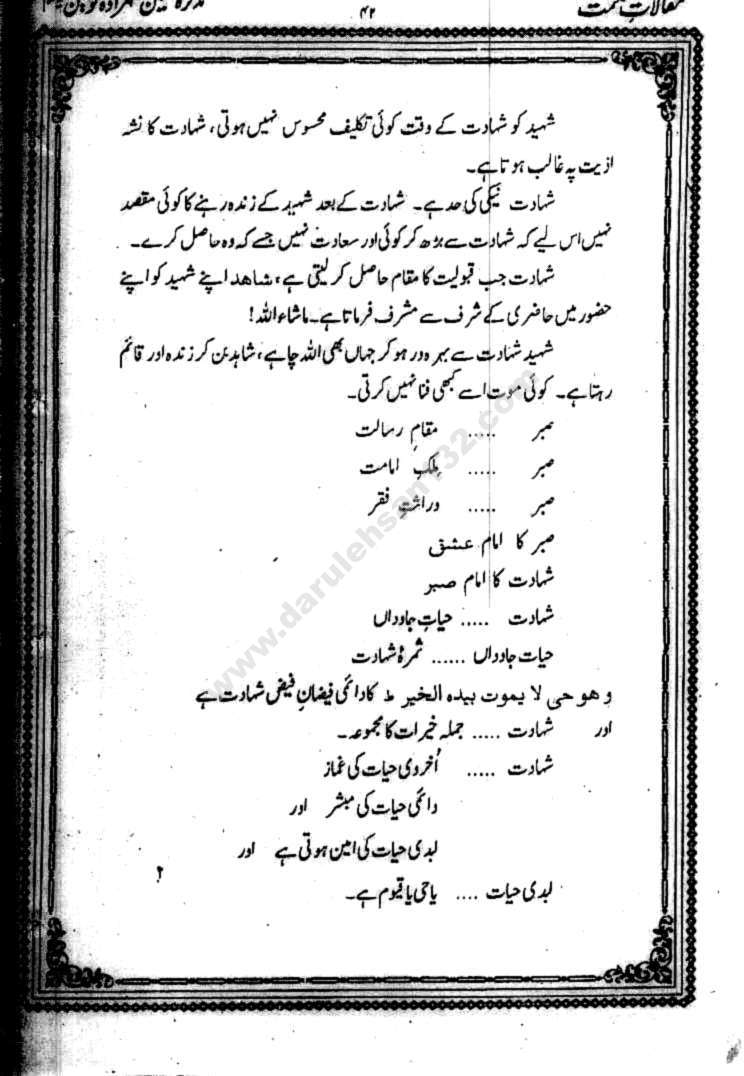 مقالاتِ حکمت
۴۲
شہید کو شہادت کے وقت کوئی تکلیف محسوس نہیں ہوتی، شہادت کا نشہ
ازیت پہ غالب ہوتا ہے۔
شہادت نیکی کی حد ہے۔ شہادت کے بعد شہید کے زندہ رہنے کا کوئی مقصد
نہیں اس لیے کہ شہادت سے بڑھ کر کوئی اور سعادت نہیں جسے کہ وہ حاصل کرے۔
شہادت جب قبولیت کا مقام حاصل کر لیتی ہے، شاھد اپنے شہید کو اپنے
حضور میں حاضری کے شرف سے مشرف فرماتا ہے۔ ماشاء اللہ!
شہید شہادت سے بہرہ ور ہو کر جہاں بھی اللہ چاہے، شاہد بن کر زندہ اور قائم
رہتا ہے۔ کوئی موت اسے کبھی فنا نہیں کرتی۔
صبر ..... مقامِ رسالت
صبر ..... مِلکِ امامت
صبر ..... وراثتِ فقر
صبر کا امام عشق
شہادت کا امام صبر
شہادت ..... حیاتِ جاوداں
حیات جاوداں ...... ثمرۂ شہادت
وھو حی لا یموت بیدہ الخیر ط کا دائمی فیضانِ فیض شہادت ہے
اور شہادت ..... جملہ خیرات کا مجموعہ۔
شہادت ..... اُخروی حیات کی غماز
دائمی حیات کی مبشر اور
ابدی حیات کی امین ہوتی ہے اور
ابدی حیات .... یا حی یا قیوم ہے۔
www.darulehsan732.com